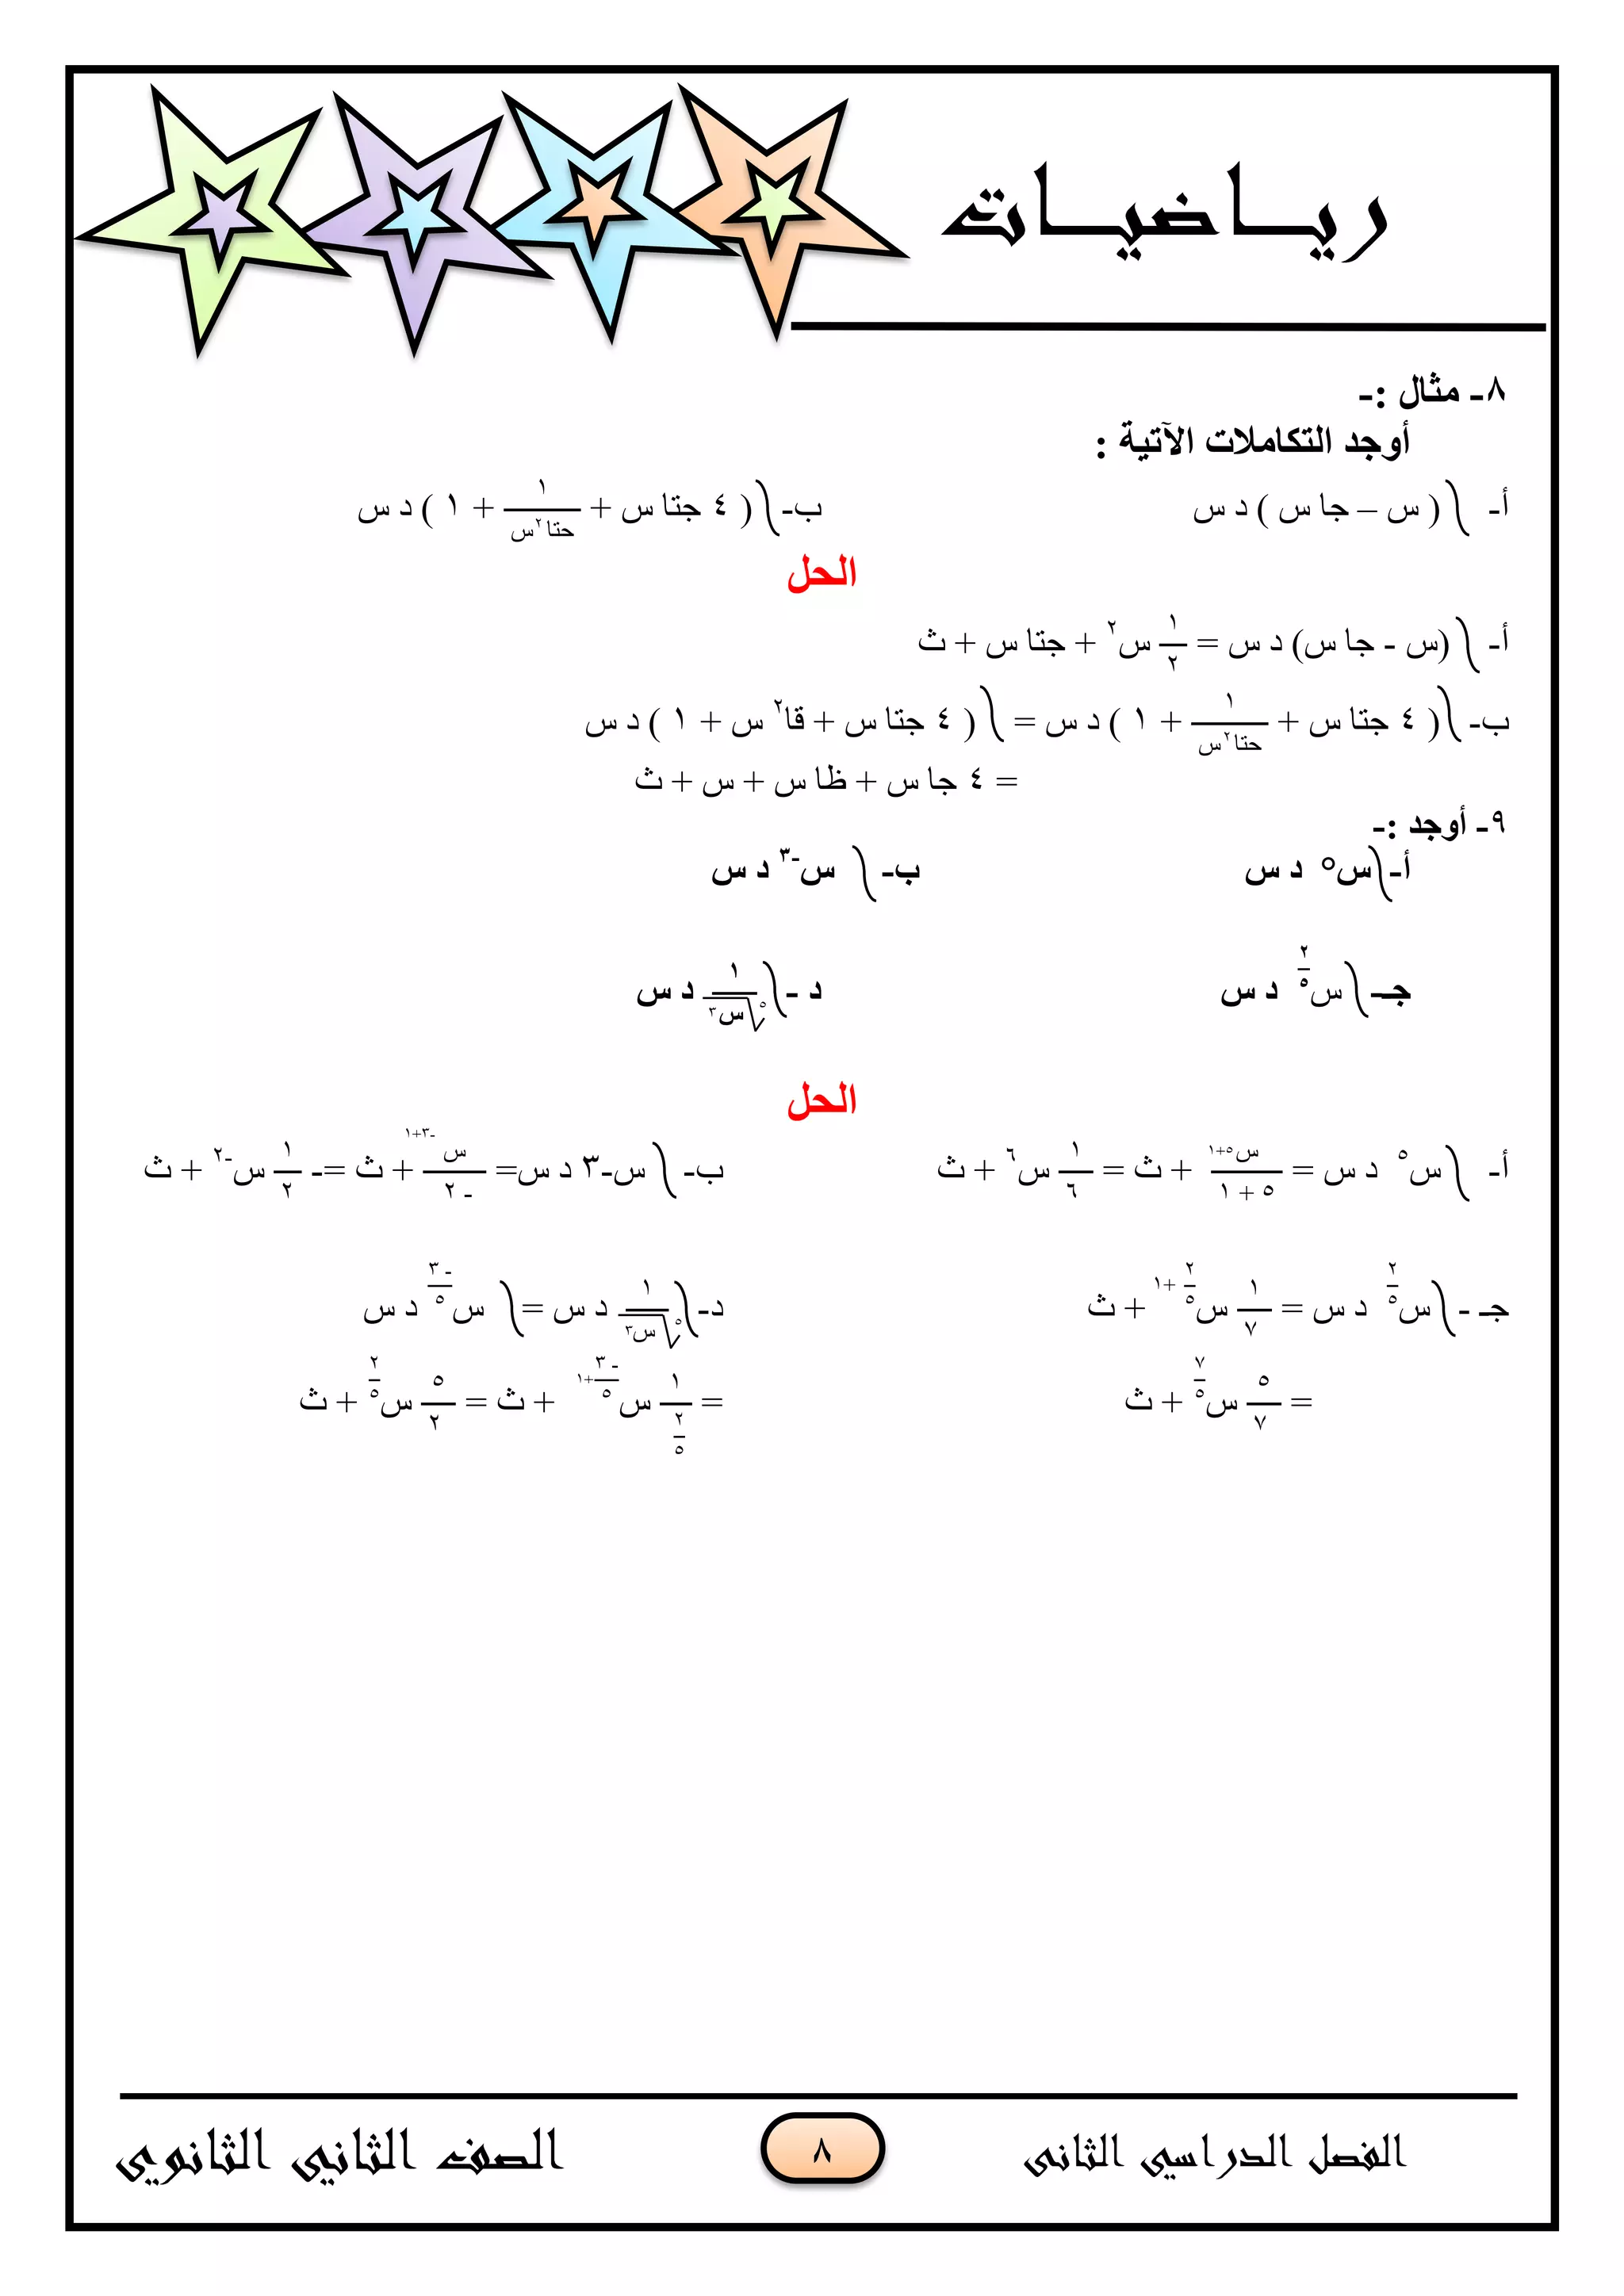 ريـاضيـات
٨- مثال :-
أوجد التكاملات الآتية :
أ- ∫ ( س – جا س ) د س ب- ∫ ( ٤ جتا س + ١/حتا٢س + ١ ) د س
الحل
أ- ∫ (س - جا س) د س = ١/٢ س٢ + جتا س + ث
ب- ∫ ( ٤ جتا س + ١/حتا٢س + ١ ) د س = ∫ ( ٤ جتا س + قا٢ س + ١ ) د س
= ٤ جا س + ظا س + س + ث
٩- أوجد :-
أ- ∫ س٥ د س ب- ∫ س-٣ د س
جـ- ∫ س٢/٥ د س د - ∫ ١/٥√س٣ د س
الحل
أ- ∫ س٥ د س = س٥+١/٥ + ١ + ث = ١/٦ س٦ + ث ب- ∫ س-٣ د س= س-٣+١/- ٢ + ث =- ١/٢ س-٢ + ث
جـ - ∫ س٢/٥ د س = ١/٧ س٢/٥ +١ + ث د- ∫ ١/٥√س٣ د س = ∫ س- ٣/٥ د س
= ٥/٧ س٧/٥ + ث = ١/٢/٥ س- ٣/٥+١ + ث = ٥/٢ س٢/٥ + ث
الفصل الدراسي الثانى ٨ الصف الثاني الثانوي